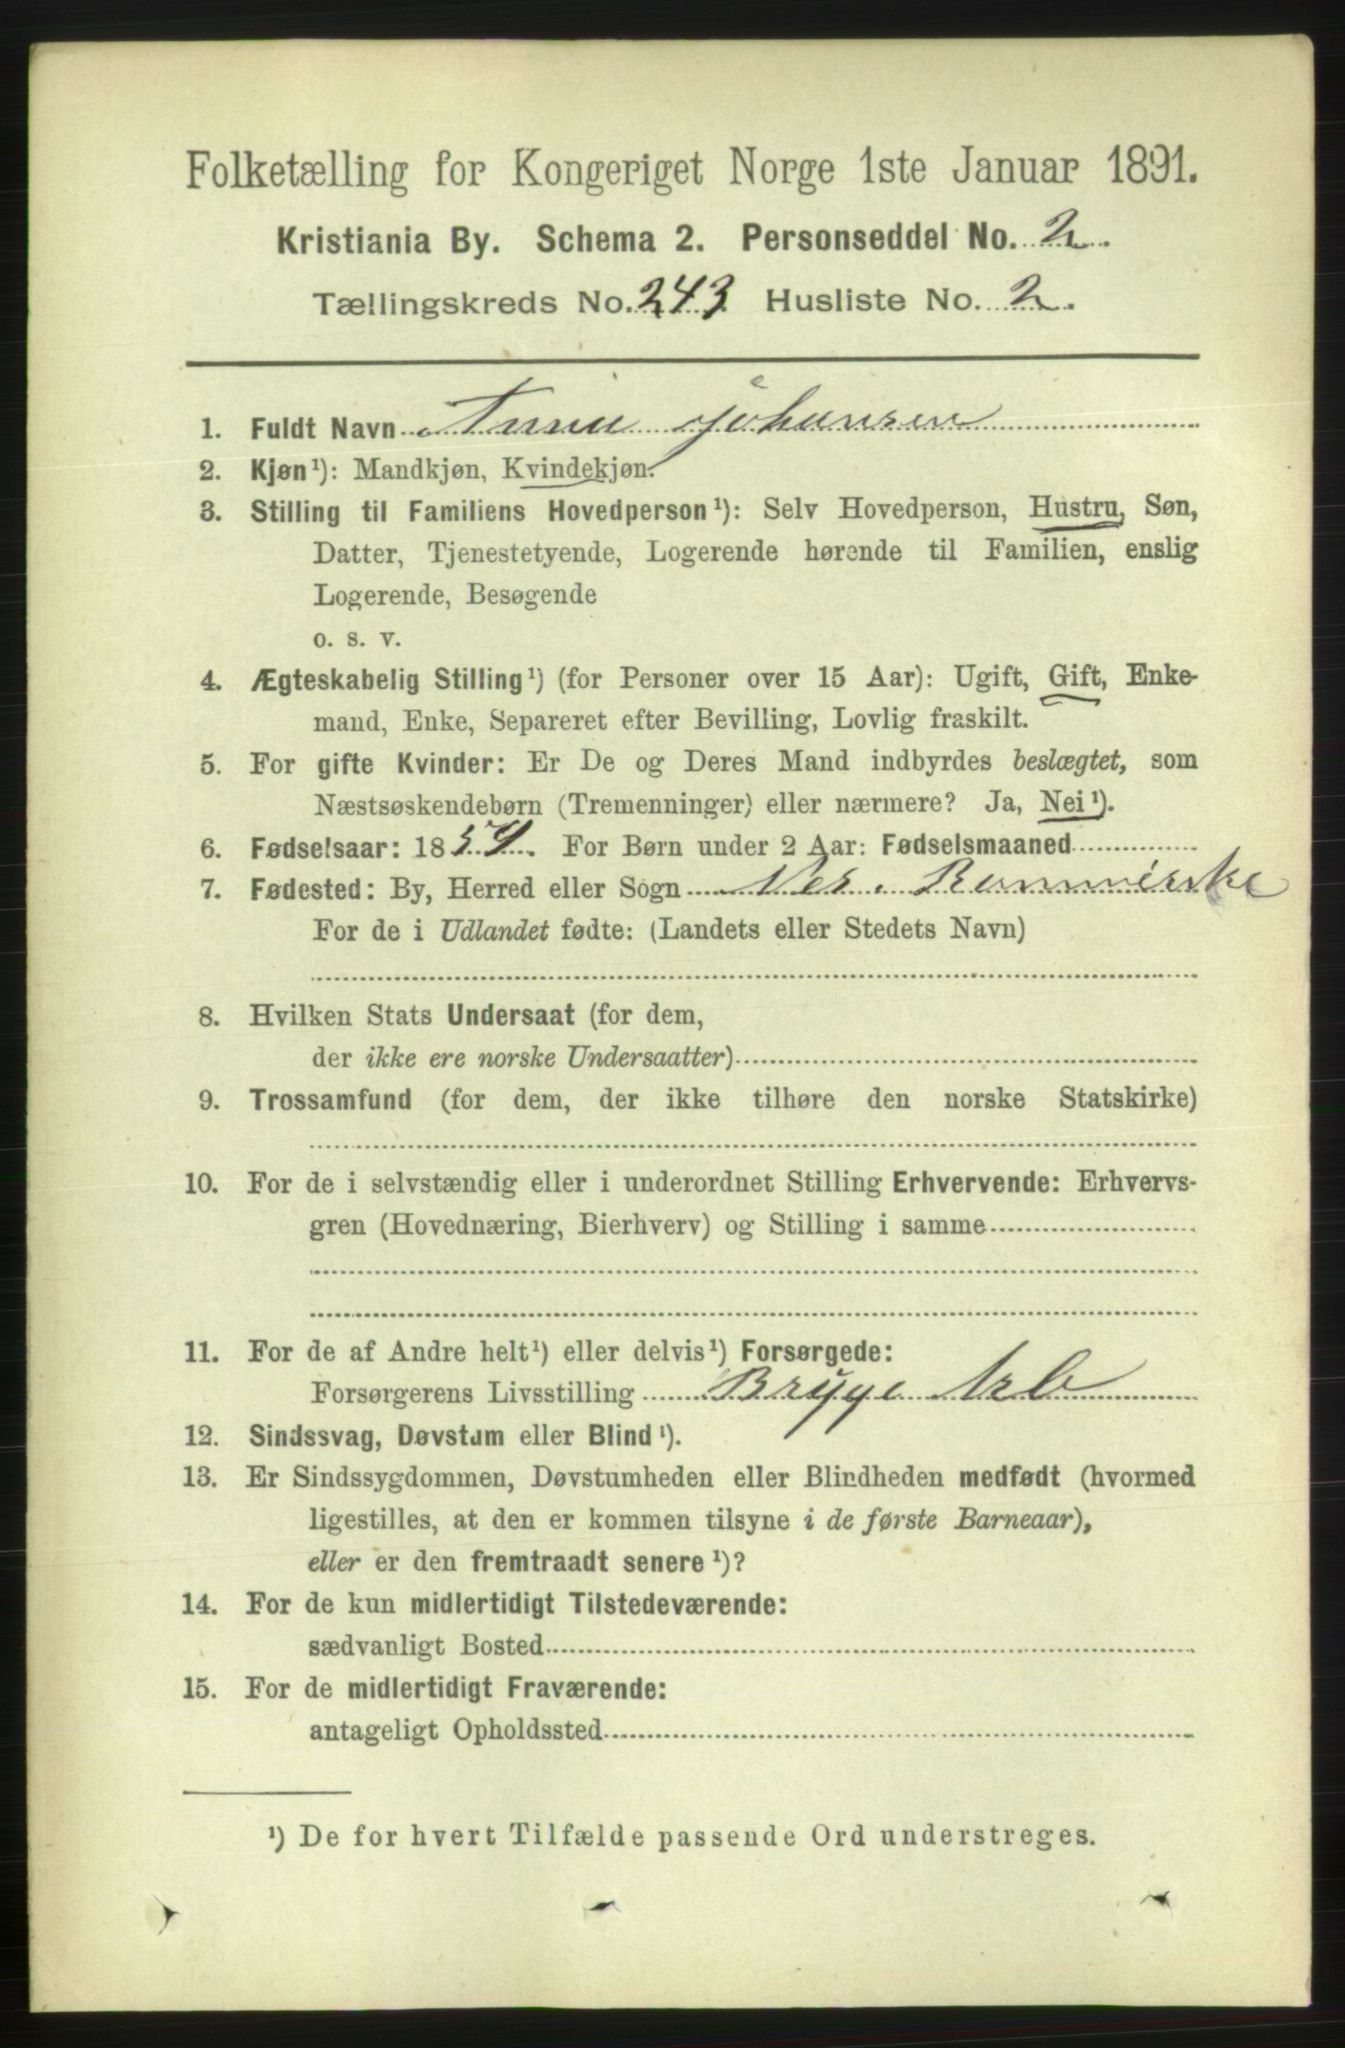 Folketælling for Kongeriget Norge 1ste Januar 1891.
Kristiania By. Schema 2. Personseddel No. 2.
Tællingskreds No. 243 Husliste No. 2.
1. Fuldt Navn Johansen
2. Kjøn¹): Mandkjøn, Kvindekjøn.
3. Stilling til Familiens Hovedperson¹): Selv Hovedperson, Hustru, Søn,
Datter, Tjenestetyende, Logerende hørende til Familien, enslig
Logerende, Besøgende
o. s. v.
4. Ægteskabelig Stilling¹) (for Personer over 15 Aar): Ugift, Gift, Enke-
mand, Enke, Separeret efter Bevilling, Lovlig fraskilt.
5. For gifte Kvinder: Er De og Deres Mand indbyrdes beslægtet, som
Næstsøskendebørn (Tremenninger) eller nærmere? Ja, Nei¹).
6. Fødselsaar: 18 . For Børn under 2 Aar: Fødselsmaaned
7. Fødested: By, Herred eller Sogn Nes.
For de i Udlandet fødte: (Landets eller Stedets Navn)
8. Hvilken Stats Undersaat (for dem,
der ikke ere norske Undersaatter)
9. Trossamfund (for dem, der ikke tilhøre den norske Statskirke)
10. For de i selvstændig eller i underordnet Stilling Erhvervende: Erhvervs-
gren (Hovednæring, Bierhverv) og Stilling i samme
11. For de af Andre helt¹) eller delvis¹) Forsørgede:
Forsørgerens Livsstilling Brygge Arb
12. Sindssvag, Døvstum eller Blind¹).
13. Er Sindssygdommen, Døvstumheden eller Blindheden medfødt (hvormed
ligestilles, at den er kommen tilsyne i de første Barneaar),
eller er den fremtraadt senere¹)?
14. For de kun midlertidigt Tilstedeværende:
sædvanligt Bosted
15. For de midlertidigt Fraværende:
antageligt Opholdssted
¹) De for hvert Tilfælde passende Ord understreges.